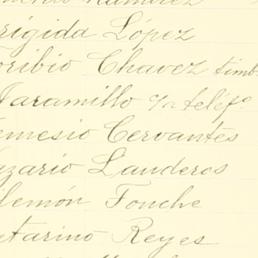 Ramirez
rigida López
oribio Chavez timb
Jaramillo y telefo
emesio Cervantes
azario Landeros
lemón Fonche
tarino Reyes